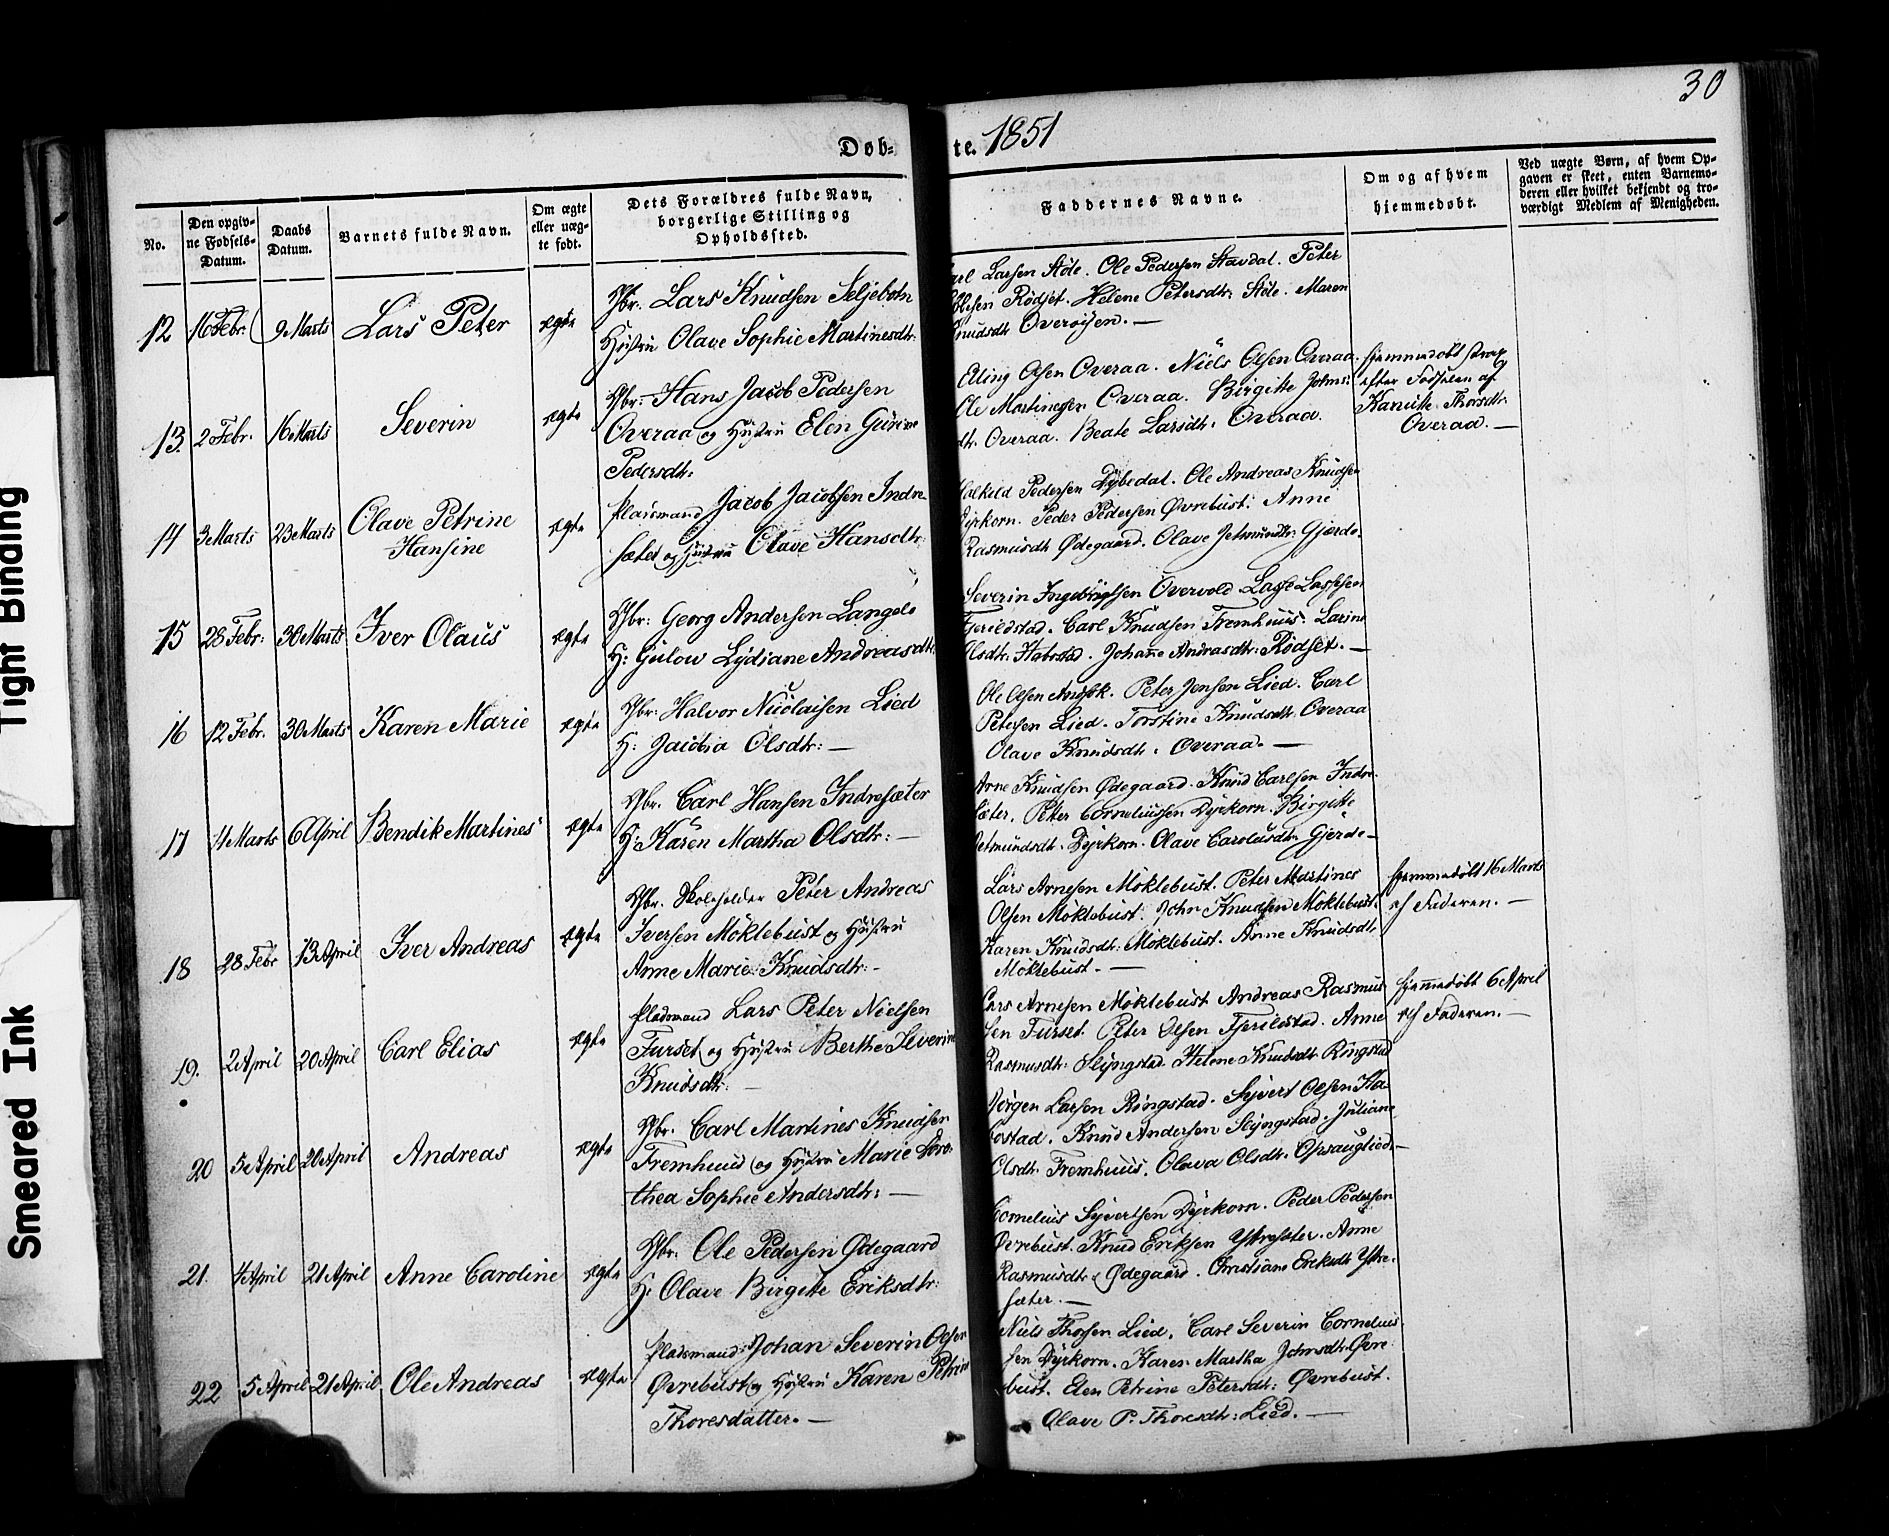 30
Døb-te. 1851
No.
Den opgiv-
ne Fødsels-
Datum.
Daabs
Datum.
Barnets fulde Navn.
Om ægte
eller uæg-
te født.
Dets Forældres fulde Navn,
borgerlige Stilling og
Opholdssted.
Faddernes Navne.
Om og af hvem
hjemmedøbt.
Ved uægte Børn, af hvem Op-
gaven er skeet, enten Barnemo-
deren eller hvilket bekjendt og tro-
værdigt Medlem af Menigheden.
12 16 Febr. 9 Marts Lars Peter ægte
Gbr. Lars Knudsen Seljebotn
Hustru Olave Sophie Martinesdtr:
Larsen Støle. Ole Pedersen Stavdal. Peter
Rødset. Helene Petersdtr: Støle. Maren
Knudsdtr Overøisen. —
13. 2 Febr. 16 Marts Severin ægte
Gbr: Hans Jacob Pedersen
Overaa og Hustru Elen Gurine
Pedersdtr:
Elling Olsen Overaa. Niels Olsen Overaa.
Ole Martinessen Overaa. Birgitte Johns:
dtr. Overaa. Beate Larsdtr. Overaa.
hjemmedøbt strax
efter Fødselen af
Kanutte Thorsdtr.
Overaa. —
14 3 Marts 23 Marts Olave Petrine
Hansine ægte
Pladsmand Jacob Jacobsen Indre-
sæter og Hustru Olave Hansdtr:
Pedersen Dybedal. Ole Andreas Knudsen
Dyrkorn. Peder Pedersen Øvrebust. Anne
Rasmusdtr Ødegaard. Olave Jetmundsdtr: Gjerde.
15 28 Febr: 30 Marts Iver Olaus ægte
Gbr: Georg Andersen Langelo
H: Gulow Lydiane Andreasdtr:
Severin Ingebrigtsen Overvold Lasse Lassesen
Fjerildstad. Carl Knudsen Fremhuus. Larine
Olsdtr: Habostad. Johanne Andreasdtr: Rødset. —
16 12 Febr. 30 Marts Karen Marie ægte
Gbr: Halvor Nicolaisen Lied
H: Jacobia Olsdtr: —
Ole Olsen. Peter Jensen Lied. Carl
Petersen Lied. Torstine Knudsdtr Overaa
Olave Knudsdtr. Overaa. —
17 4 Marts 6 April Bendik Martines ægte
Gbr. Carl Hansen Indresæter
H: Karen Martha Olsdtr: —
Arne Knudsen Ødegaard. Knud Carlsen Indre-
sæter. Peter Corneliussen Dyrkorn. Birgitte
Jetmundsdtr. Dyrkorn. Olave Carolusdtr. Gjerde —
18 28 Febr 13 April Iver Andreas ægte
Gbr. Skoleholder Peter Andreas
Iversen Møklebust og Hustru
Anne Marie Knudsdtr: —
Lars Arnesen Møklebust. Peter Martines
Olsen Møklebust. John Knudsen Møklebust.
Karen Knudsdtr: Møklebust. Anne Knudsdtr.
Møklebust. —
hjemmedøbt 16 Marts
af Faderen. —
19. 2 April 20 April Carl Elias ægte
Pladsmand Lars Peter Nielsen
Furset og Hustru Berthe Severine
Knudsdtr: —
Lars Arnesen Møklebust Andreas Rasmus-
sen Furset. Peter Olsen Fjerildstad. Anne
Rasmusdtr: Slyngstad. Helene Knudsdtr Ringstad
hjemmedøbt 6 April
af Faderen. —
20 5 April 20 April Andreas ægte
Gbr. Carl Martines Knudsen
Fremhuus og Hustru Marie Doro-
thea Sophie Andersdtr: —
Jørgen Larsen Ringstad. Syvert Olsen Ha-
bostad. Knud Andersen Slyngstad. Juliane
Olsdtr. Fremhuus. Olava Olsdtr. Opsauglied. —
21. 4 April 21 April Anne Caroline ægte
Gbr. Ole Pedersen Ødegaard
H: Olave Birgitte Eriksdtr:
Cornelius Syvertsen Dyrkorn. Peder Pedersen
Øvrebust. Knud Eriksen Ytresæter. Anne
Rasmusdtr. Ødegaard. Christiane Eriksdtr Ytre-
sæter. —
22 5 April 21 April Ole Andreas ægte
Pladsmand Johan Severin Olsen
Øvrebust og Hustru Karen Petrine
Thoresdatter. —
Niels Thorsen Lied. Carl Severin Cornelius-
sen Dyrkorn. Karen Martha Johnsdtr. Øvre-
bust. Elen Petrine Petersdtr: Øvrebust.
Olave P. Thoresdtr: Lied. —
Tight Binding
Smeared Ink